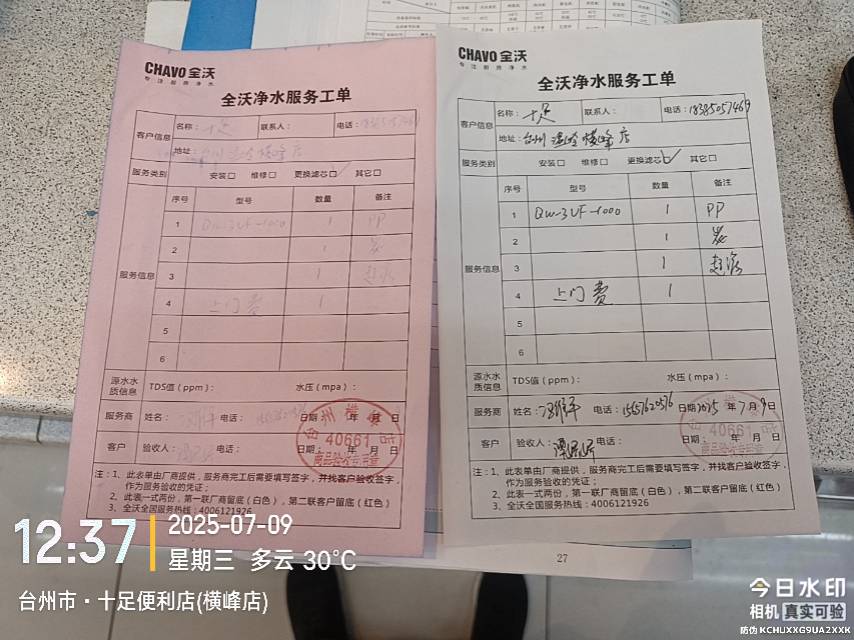 CHAVO全沃
专注厨房净水
全沃净水服务工单
客户信息
名称：十足
联系人：
电话：
地址：台州 温岭 横峰店
服务类别
安装□ 维修□ 更换滤芯□✓ 其它□
服务信息
序号 型号 数量 备注
1 QW-3UF-1000 1 PP
2 1 炭
3 1 超滤
4 上门费 1
5
6
源水水质信息
TDS值（ppm）： 水压（mpa）：
服务商 姓名： 电话： 日期： 年 月 日
客户 验收人： 电话： 日期： 年 月 日
台州横峰店
40661
商品验收专用章
注：1、此表单由厂商提供，服务商完工后需要填写签字，并找客户验收签字，
作为服务验收的凭证；
2、此表一式两份，第一联厂商留底（白色），第二联客户留底（红色）
3、全沃全国服务热线：4006121926
CHAVO全沃
专注厨房净水
全沃净水服务工单
客户信息
名称：十足
联系人：
电话：18385057469
地址：台州 温岭 横峰店
服务类别
安装□ 维修□ 更换滤芯□✓ 其它□
服务信息
序号 型号 数量 备注
1 QW-3UF-1000 1 PP
2 1 炭
3 1 超滤
4 上门费 1
5
6
源水水质信息
TDS值（ppm）： 水压（mpa）：
服务商 姓名： 电话： 日期2025年7月9日
客户 验收人： 电话： 日期： 年 月 日
40661
注：1、此表单由厂商提供，服务商完工后需要填写签字，并找客户验收签字，
作为服务验收的凭证；
2、此表一式两份，第一联厂商留底（白色），第二联客户留底（红色）
3、全沃全国服务热线：4006121926
27
12:37
2025-07-09
星期三 多云 30℃
台州市·十足便利店(横峰店)
今日水印
相机 真实可验
防伪 KCHUXXG9UA2XXK